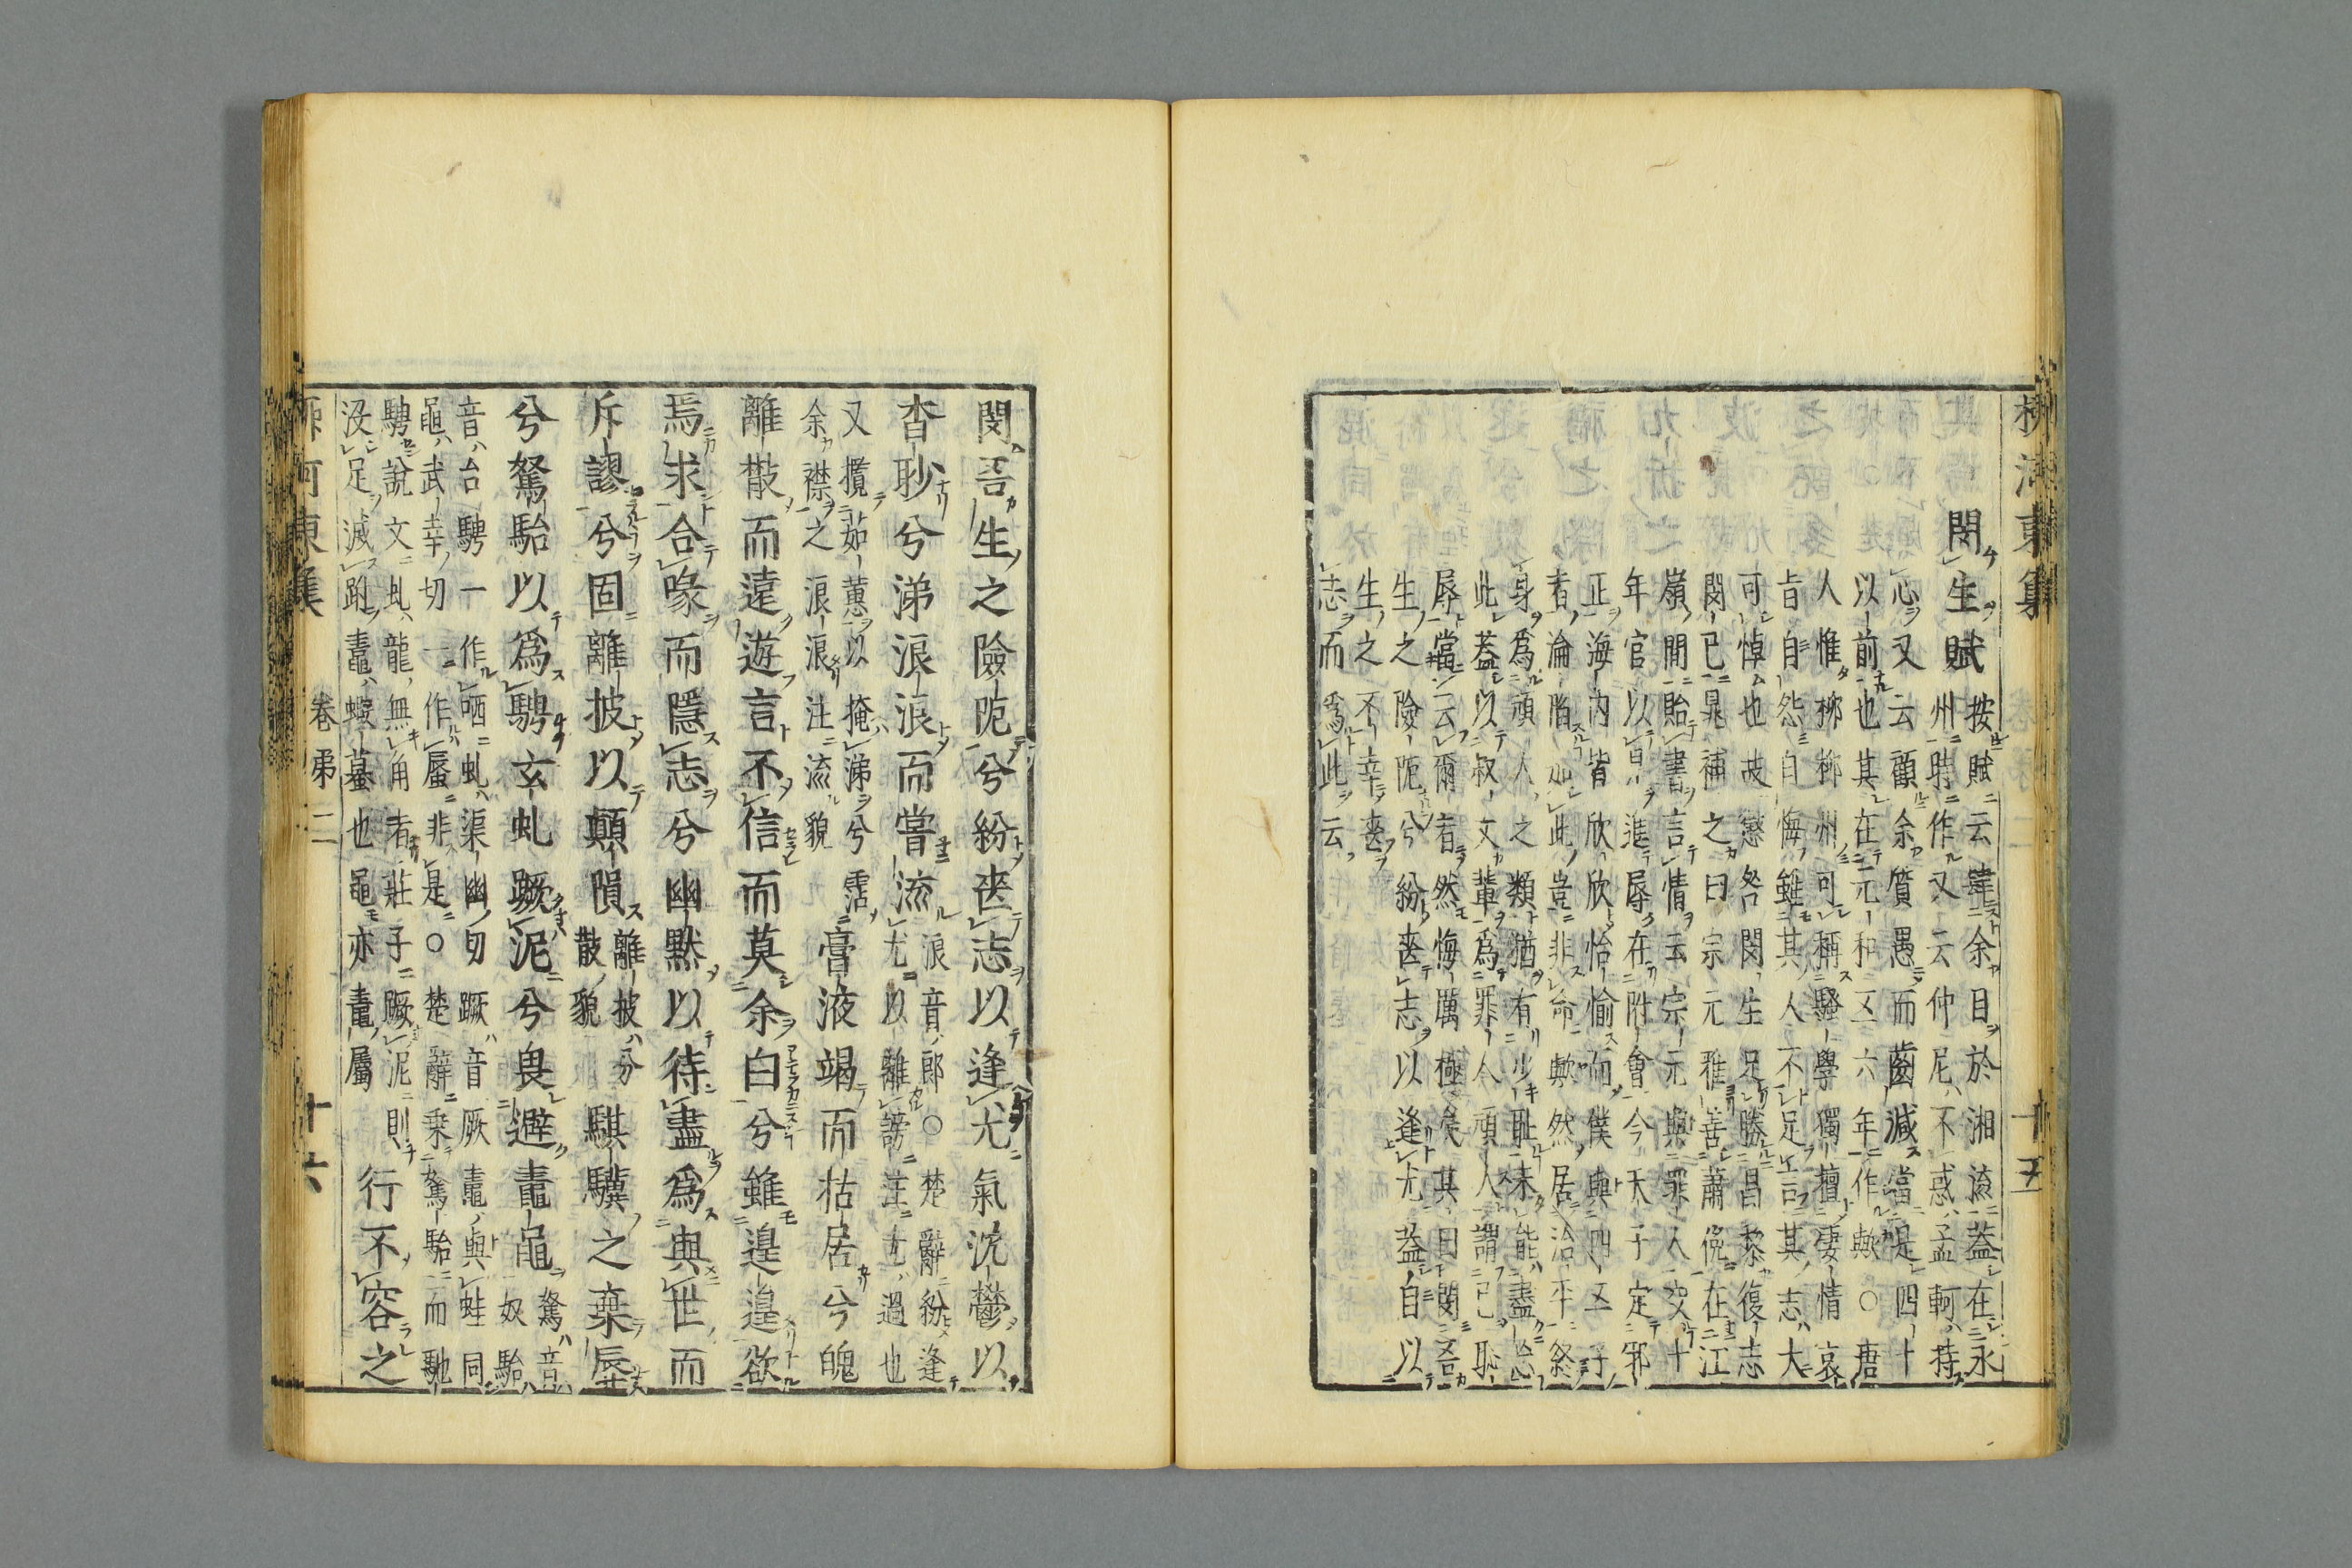 柳河東集 十五
閔生賦
按賦云肆余目於湘流蓋在永
州時作又云仲尼不惑孟軻持
心又云顧余質愚而齒減當是四十
以前也其在元和五六年作歟○唐
人惟柳柳州可稱騷學獨擅凄情哀
旨自怨自悔雖其人不足言其志大
可悼也故懲咎閔生足勝昌黎復志
閔已晁補之曰宗元雅善蕭俛在江
嶺間貽書言情云宗元與罪人交十
年官以是進辱在附會今天子定邪
正海内皆欣欣怡愉而僕與四五子
者淪陷如此豈非命歟然居治平終
身爲頑人之類猶有少恥未能盡忘
此蓋以叔文輩爲罪人頑人謂己恥
辱當云爾者然悔厲極矣其曰閔吾
生之險阨兮紛喪志以逢尤蓋自以
生之不幸喪
志而爲此云
閔吾生之險阨兮紛喪志以逢尤氣沈鬱以
杳眇兮涕浪浪而嘗流
浪音郎○楚辭紛逢
尤以離謗注尤過也
又攬茹蕙以掩涕兮霑
余襟之浪浪注流貌
膏液竭而枯居兮魄
離散而遠遊言不信而莫余白兮雖遑遑欲
焉求合喙而隱志兮幽默以待盡爲與世而
斥謬兮固離披以顛隕
離披分
散貌
騏驥之棄辱
兮駑駘以爲騁玄虬蹶泥兮畏避鼃黽
駑音
奴駘
音台騁一作硒虬渠幽切蹶音厥鼃與蛙同
黽武幸切一作蜃非是○楚辭乘駑駘而馳
騁說文虬龍無角者莊子蹶泥則
沒足滅跗鼃蝦蟇也黽亦鼃屬
行不容之
柳河東集 卷第二 十六